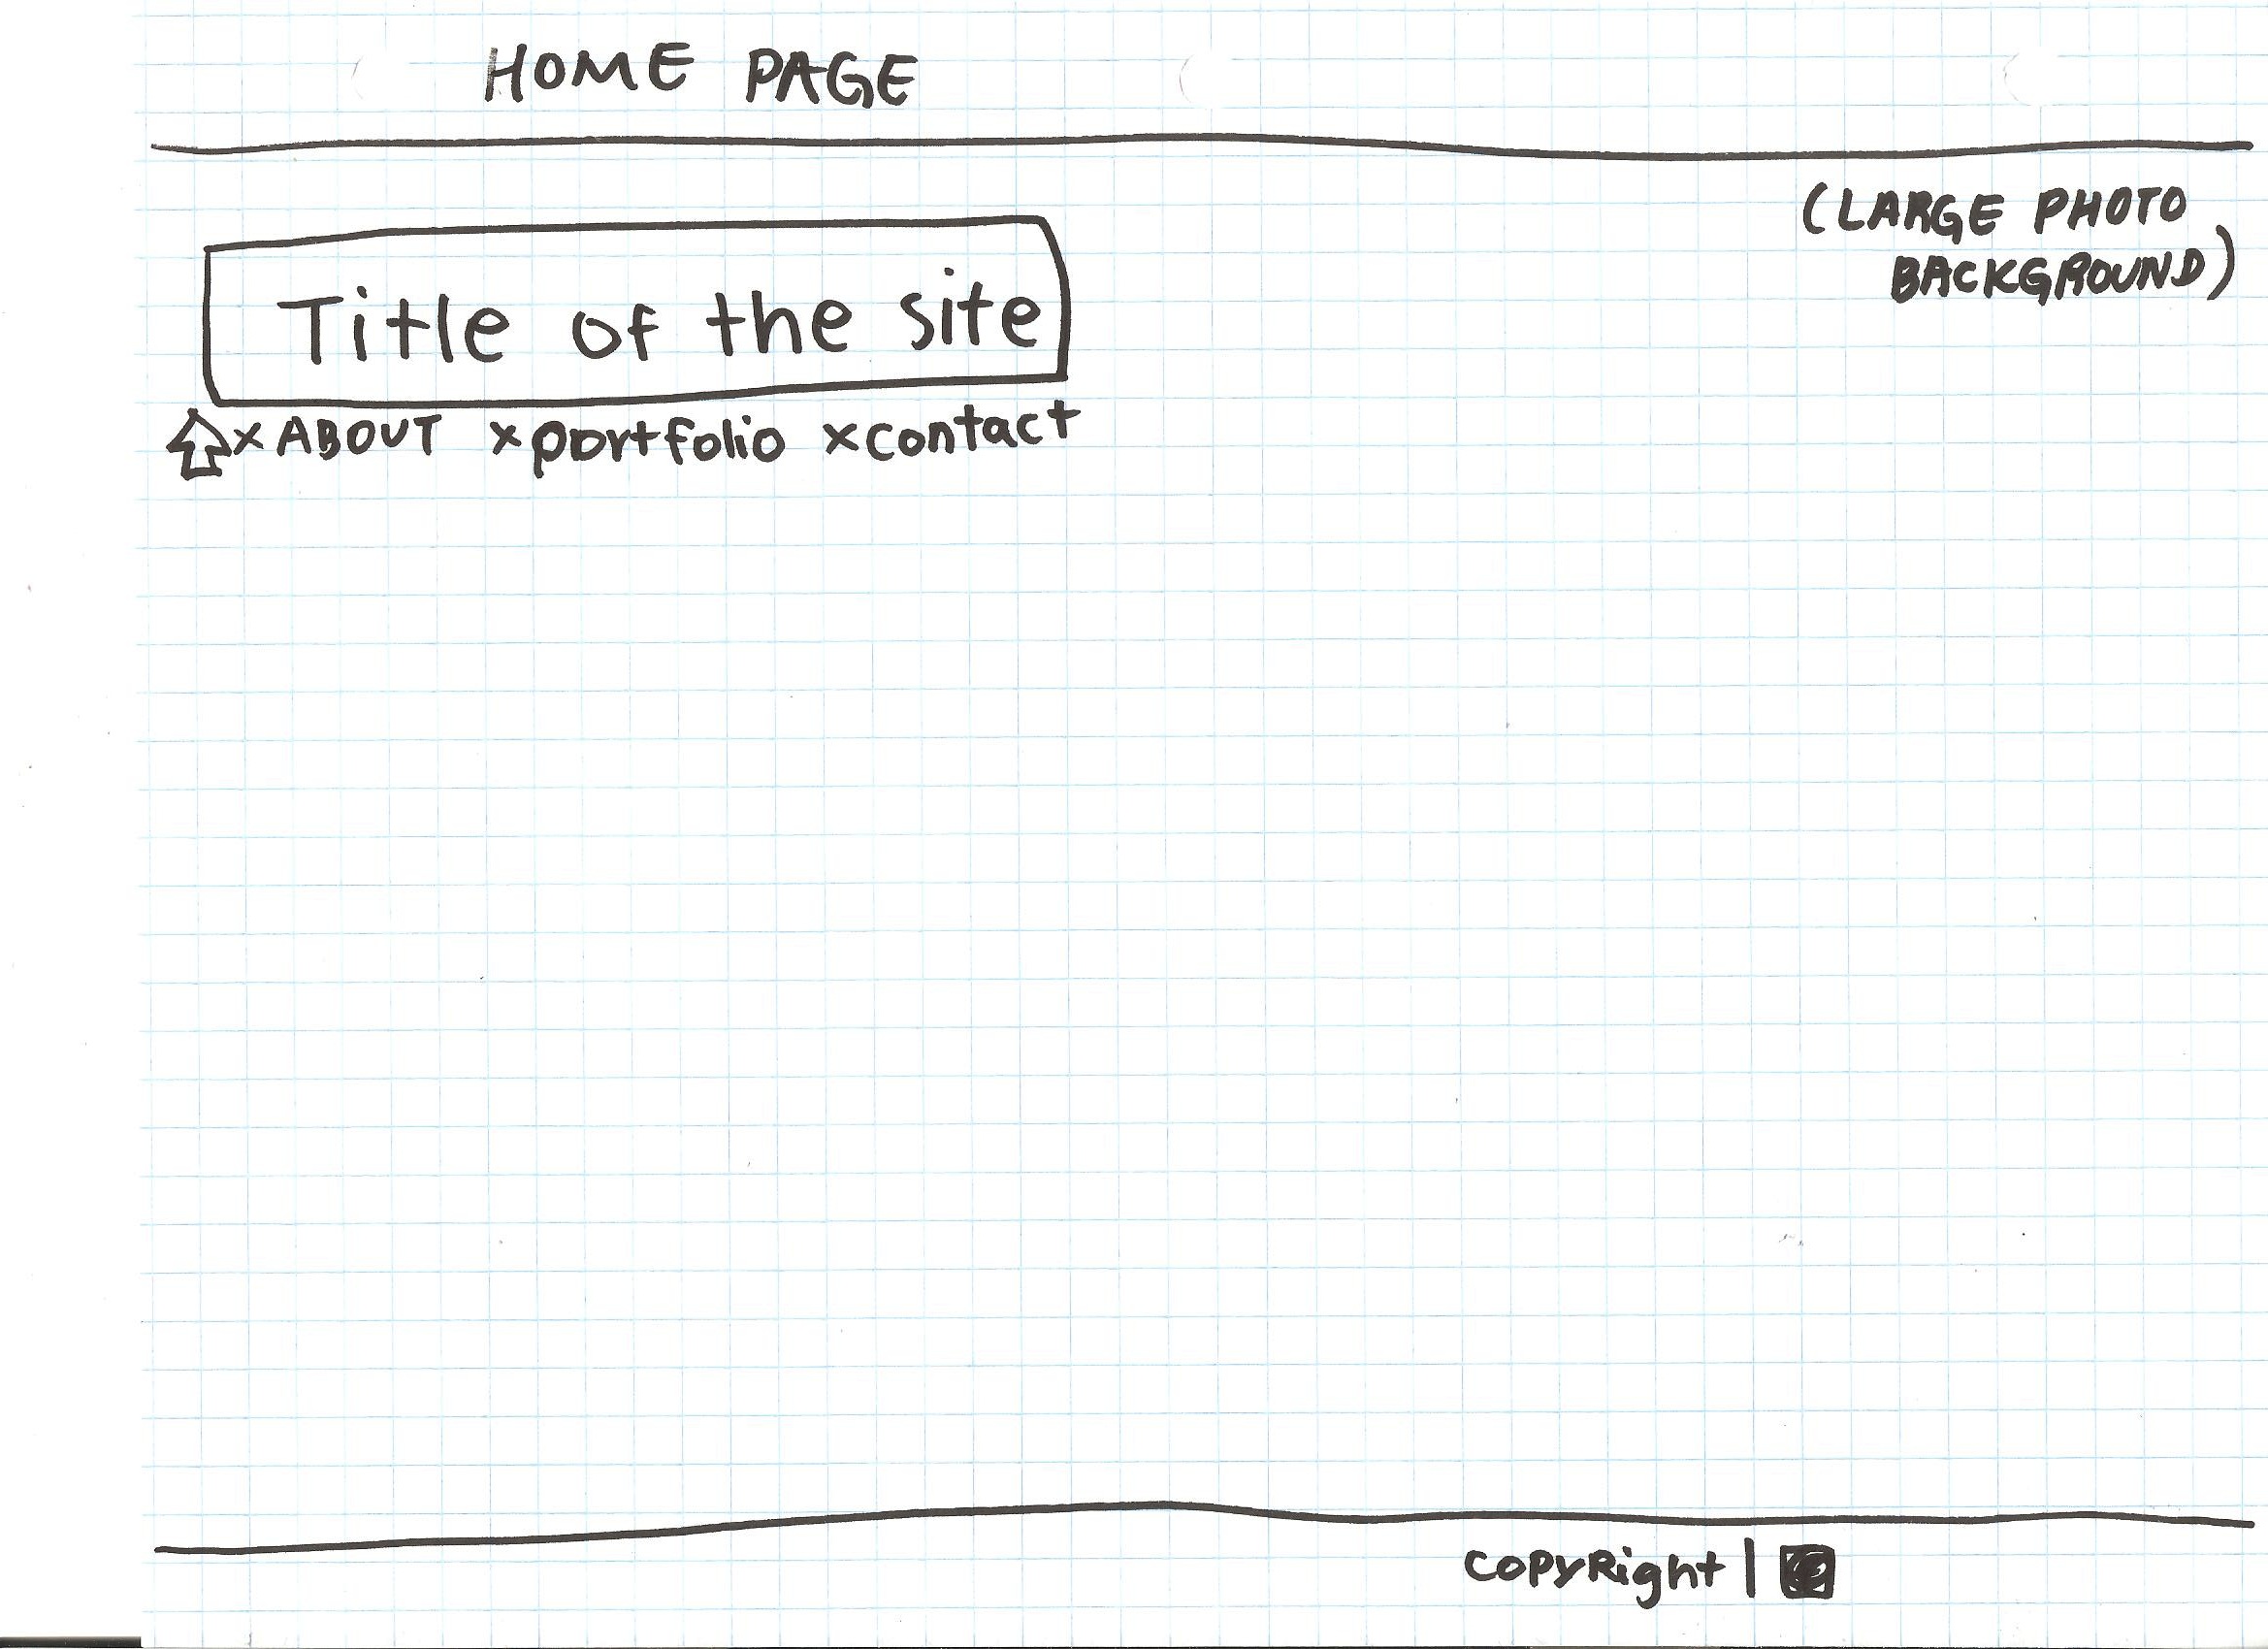 HOME PAGE
(LARGE PHOTO
BACKGROUND)
Title of the site
x ABOUT x portfolio x contact
copyRight |